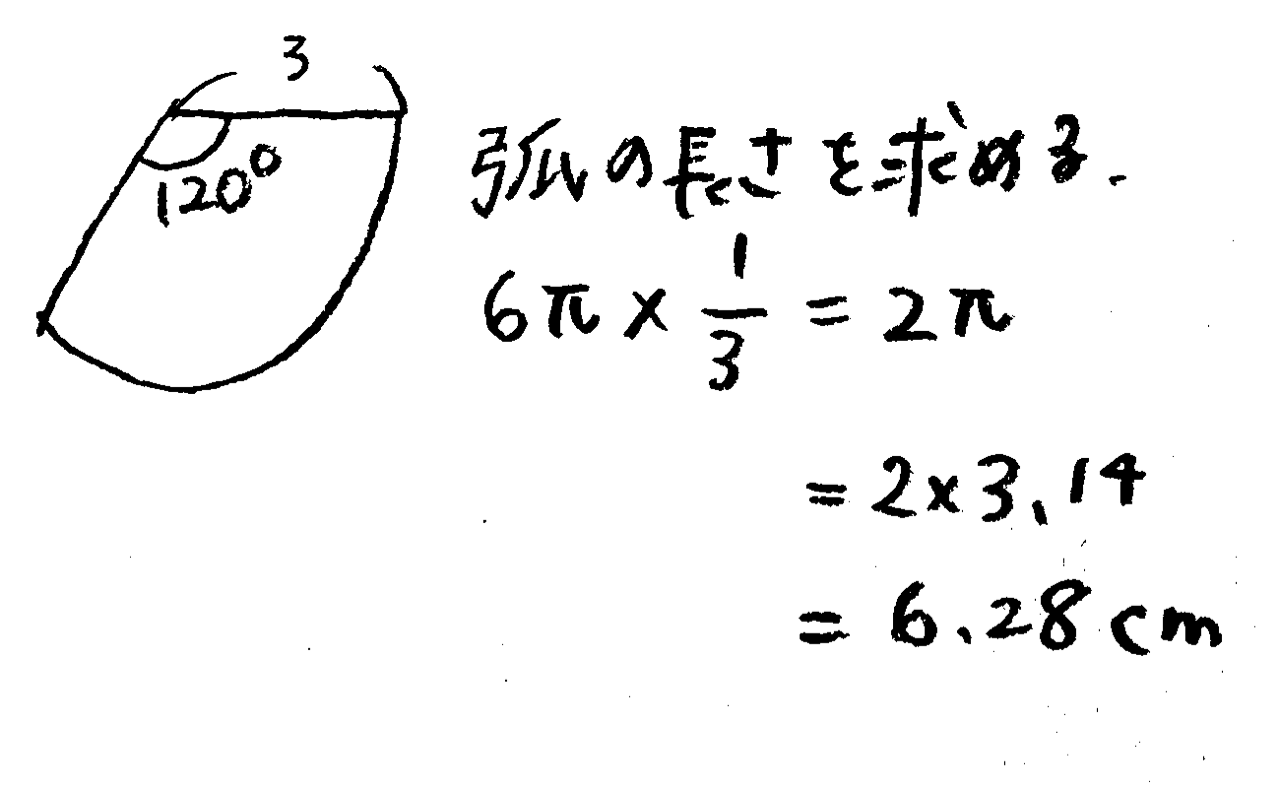 3
120°
弧の長さを求める.
6π × 1/3 = 2π
= 2×3.14
= 6.28cm